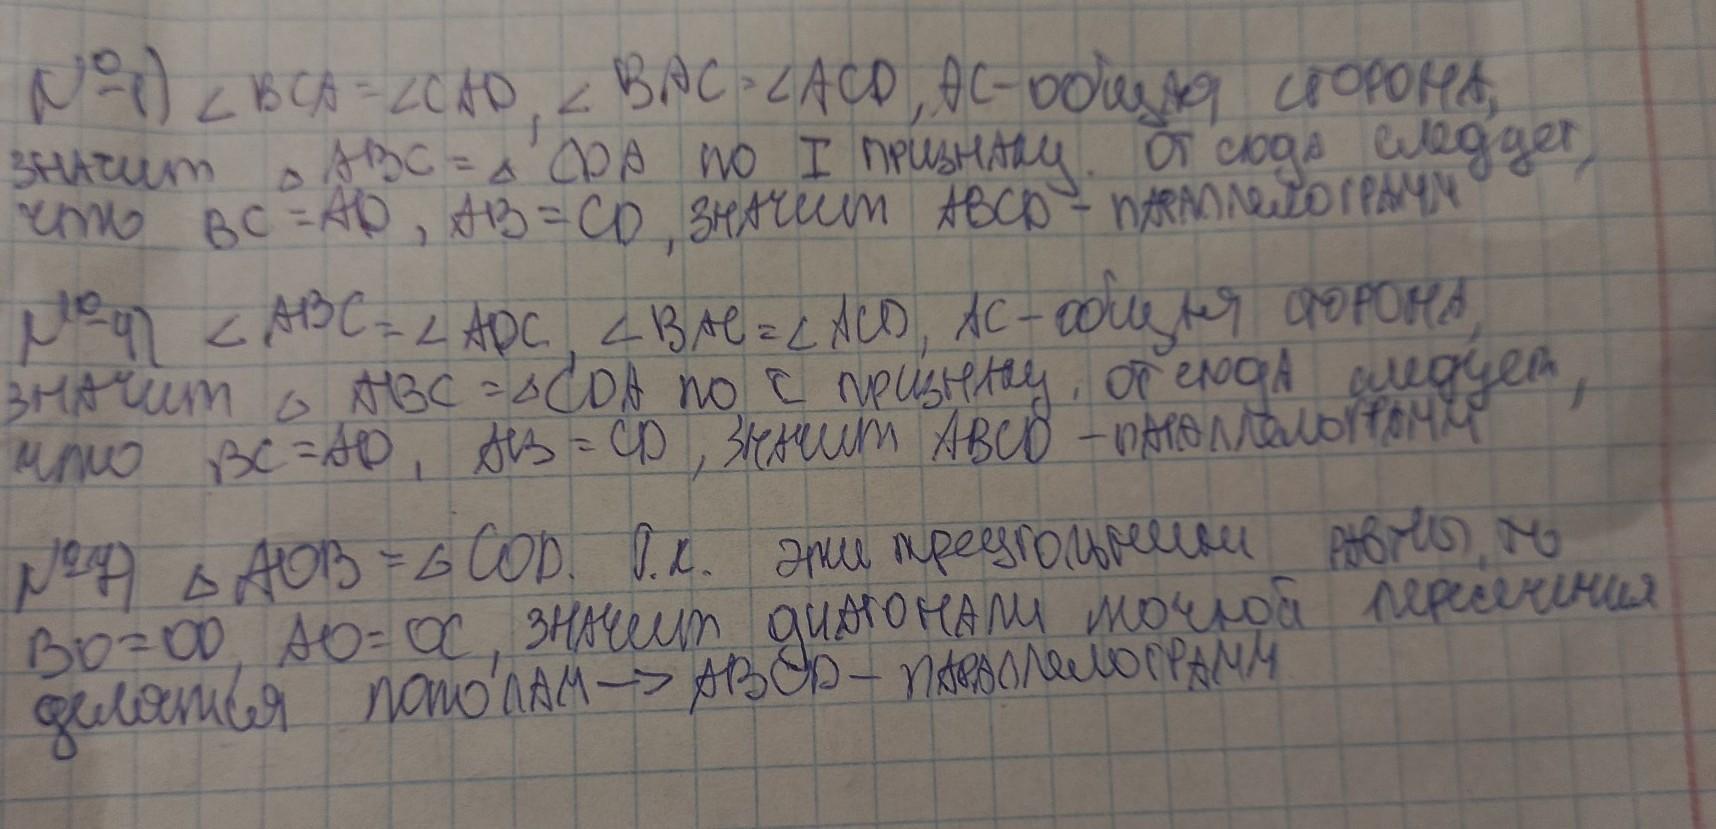 №1) ∠BCA = ∠CAD, ∠BAC = ∠ACD, AC - общая сторона,
значит △ABC = △CDA по I признаку. От сюда следует,
что BC = AD, AB = CD, значит ABCD - параллелограмм
№4) ∠ABC = ∠ADC, ∠BAC = ∠ACD, AC - общая сторона,
значит △ABC = △CDA по I признаку. От сюда следует,
что BC = AD, AB = CD, значит ABCD - параллелограмм
№7) △AOB = △COD. Т.к. эти треугольники равны, то
BO = OD, AO = OC, значит диагонали точкой пересечения
делятся пополам → ABCD - параллелограмм